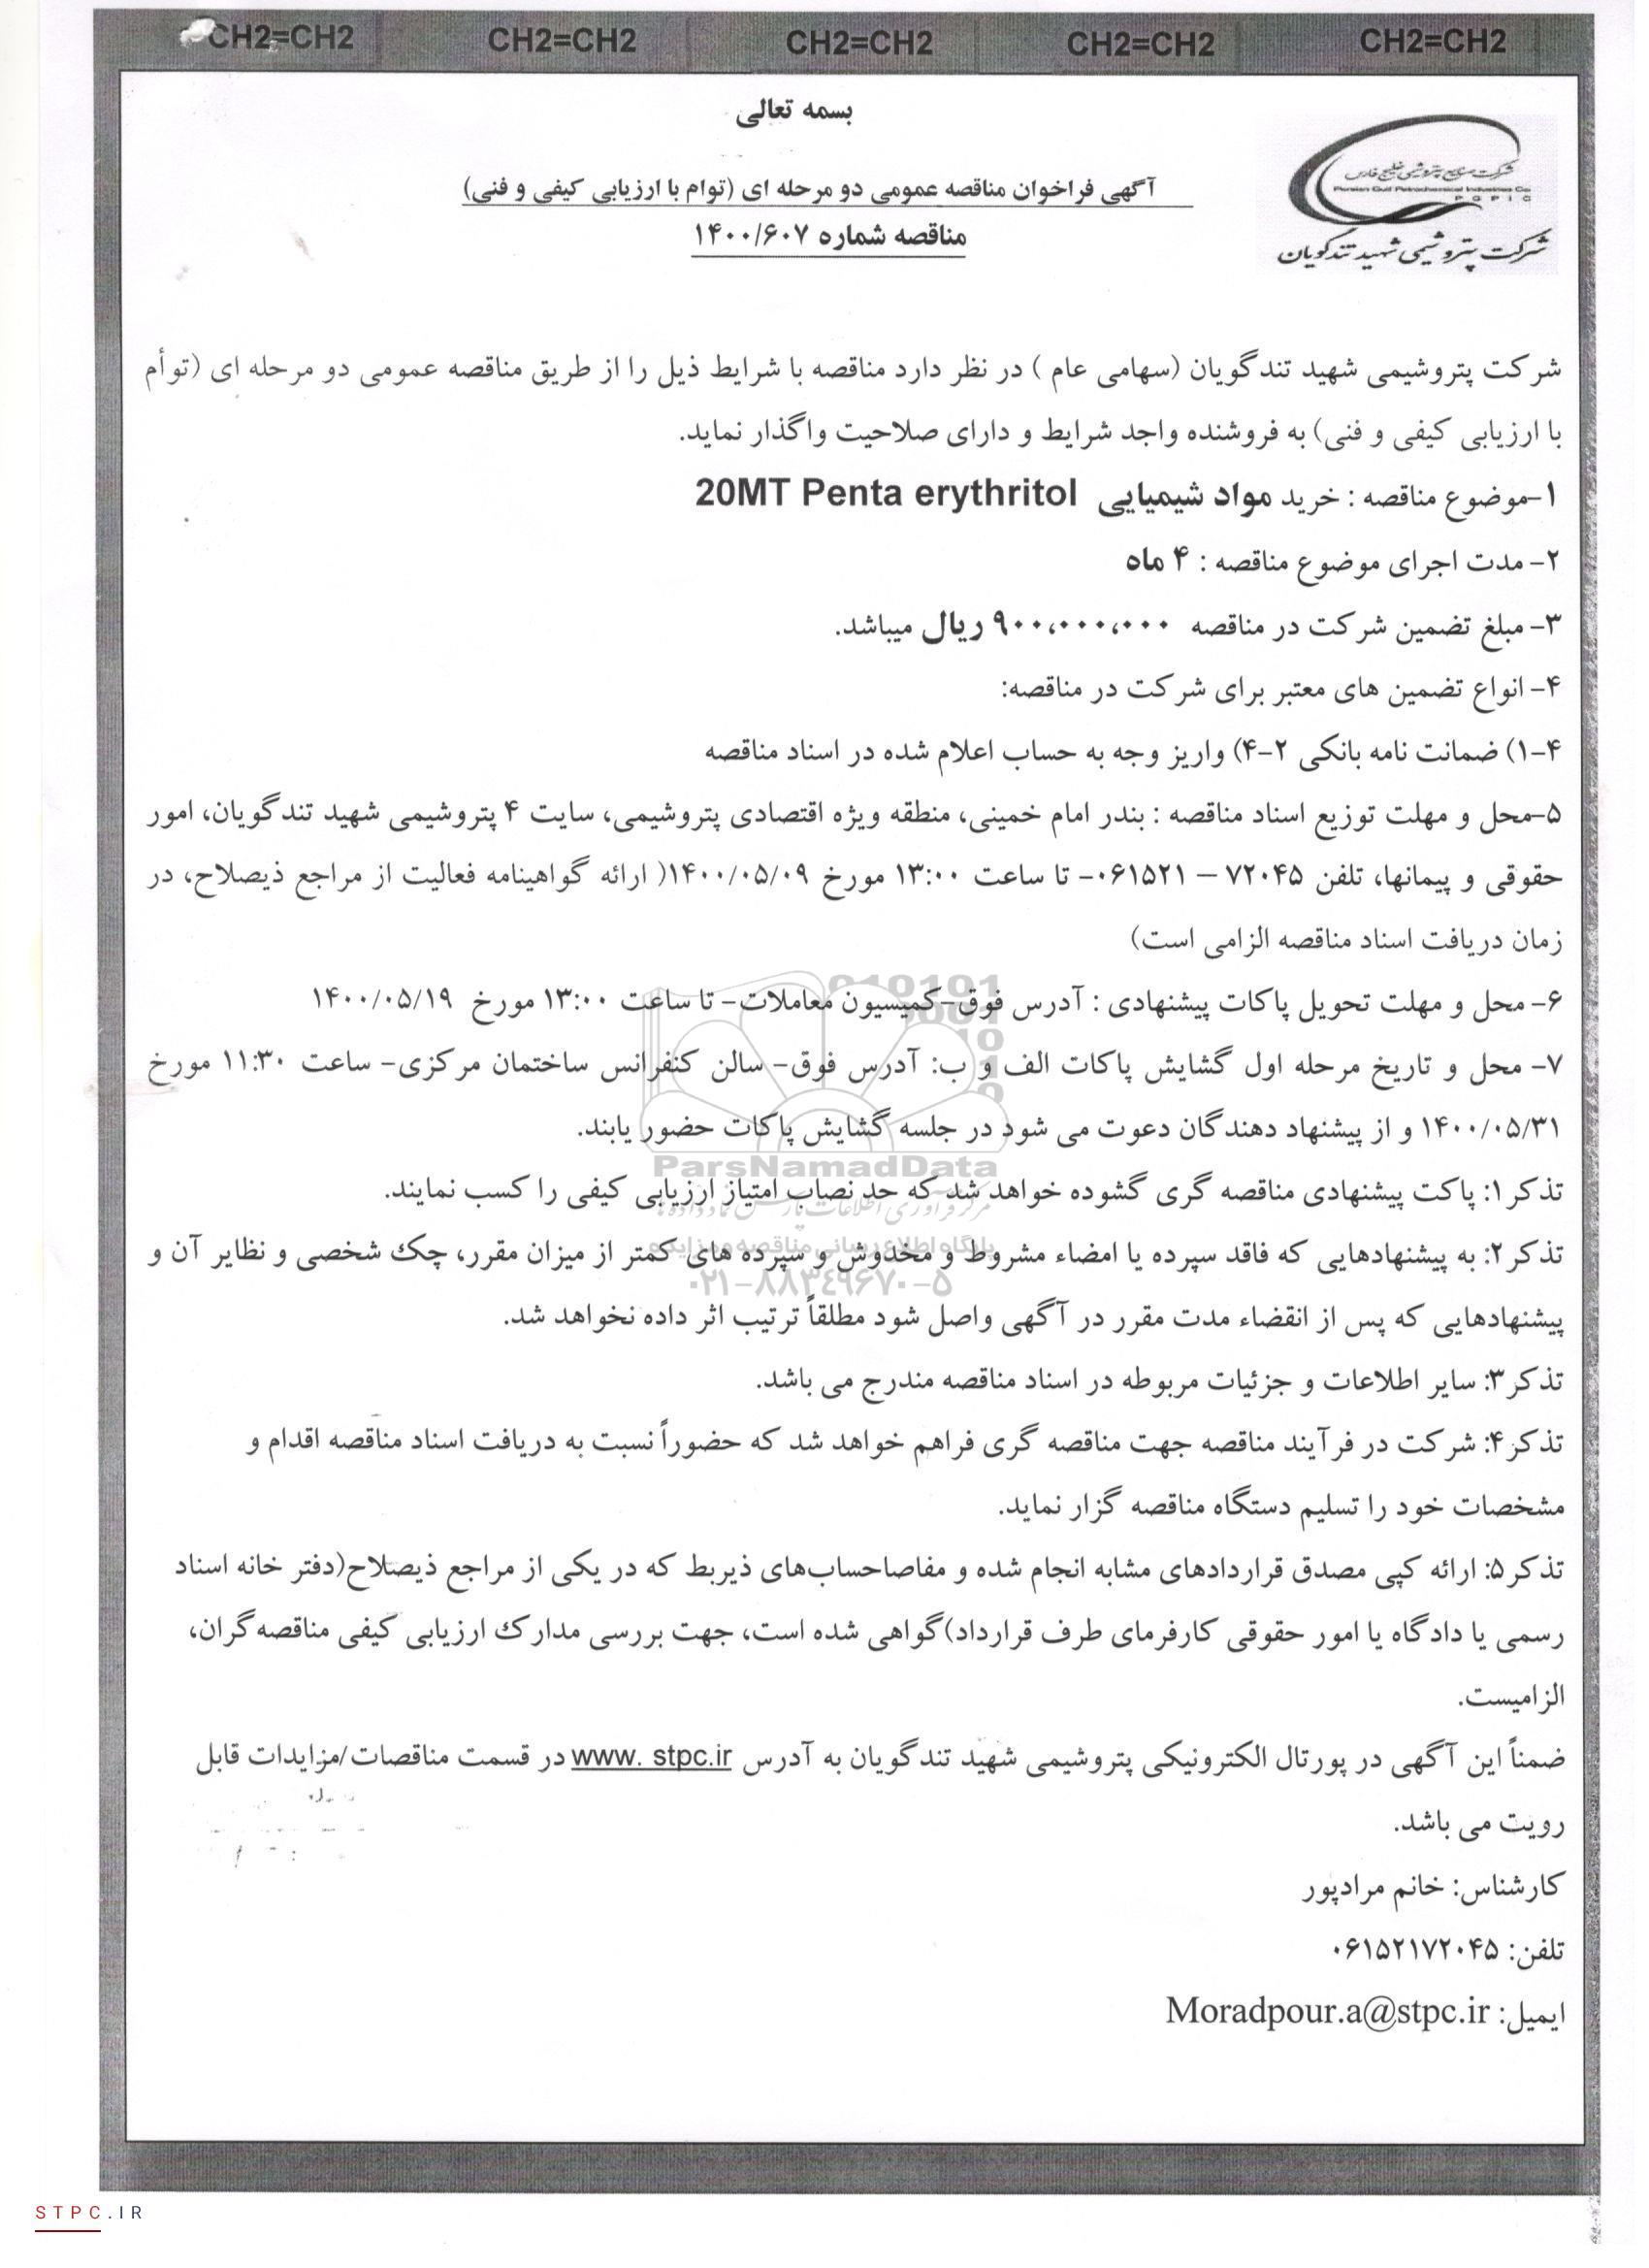 CH2=CH2 CH2=CH2 CH2=CH2 CH2=CH2 CH2=CH2
بسمه تعالی
شرکت صنایع پتروشیمی خلیج فارس
Persian Gulf Petrochemical Industries Co.
P G P I C
شرکت پتروشیمی شهید تندگویان
آگهی فراخوان مناقصه عمومی دو مرحله ای (توام با ارزیابی کیفی و فنی)
مناقصه شماره ۱۴۰۰/۶۰۷
شرکت پتروشیمی شهید تندگویان (سهامی عام ) در نظر دارد مناقصه با شرایط ذیل را از طریق مناقصه عمومی دو مرحله ای (توأم
با ارزیابی کیفی و فنی) به فروشنده واجد شرایط و دارای صلاحیت واگذار نماید.
۱-موضوع مناقصه : خرید مواد شیمیایی 20MT Penta erythritol
۲- مدت اجرای موضوع مناقصه : ۴ ماه
۳- مبلغ تضمین شرکت در مناقصه ۹۰۰،۰۰۰،۰۰۰ ریال میباشد.
۴- انواع تضمین های معتبر برای شرکت در مناقصه:
۴-۱) ضمانت نامه بانکی ۲-۴) واریز وجه به حساب اعلام شده در اسناد مناقصه
۵-محل و مهلت توزیع اسناد مناقصه : بندر امام خمینی، منطقه ویژه اقتصادی پتروشیمی، سایت ۴ پتروشیمی شهید تندگویان، امور
حقوقی و پیمانها، تلفن ۷۲۰۴۵ – ۰۶۱۵۲۱- تا ساعت ۱۳:۰۰ مورخ ۱۴۰۰/۰۵/۰۹( ارائه گواهینامه فعالیت از مراجع ذیصلاح، در
زمان دریافت اسناد مناقصه الزامی است)
۶- محل و مهلت تحویل پاکات پیشنهادی : آدرس فوق-کمیسیون معاملات- تا ساعت ۱۳:۰۰ مورخ ۱۴۰۰/۰۵/۱۹
۷- محل و تاریخ مرحله اول گشایش پاکات الف و ب: آدرس فوق- سالن کنفرانس ساختمان مرکزی- ساعت ۱۱:۳۰ مورخ
۱۴۰۰/۰۵/۳۱ و از پیشنهاد دهندگان دعوت می شود در جلسه گشایش پاکات حضور یابند.
ParsNamadData
تذکر۱: پاکت پیشنهادی مناقصه گری گشوده خواهد شد که حد نصاب امتیاز ارزیابی کیفی را کسب نمایند.
مرکز فرآوری اطلاعات پارس نماد داده ها
پایگاه اطلاع رسانی مناقصه و مزایده
تذکر۲: به پیشنهادهایی که فاقد سپرده یا امضاء مشروط و مخدوش و سپرده های کمتر از میزان مقرر، چک شخصی و نظایر آن و
۰۲۱-۸۸۳۴۹۶۷۰-۵
پیشنهادهایی که پس از انقضاء مدت مقرر در آگهی واصل شود مطلقاً ترتیب اثر داده نخواهد شد.
تذکر۳: سایر اطلاعات و جزئیات مربوطه در اسناد مناقصه مندرج می باشد.
تذکر۴: شرکت در فرآیند مناقصه جهت مناقصه گری فراهم خواهد شد که حضوراً نسبت به دریافت اسناد مناقصه اقدام و
مشخصات خود را تسلیم دستگاه مناقصه گزار نماید.
تذکر۵: ارائه کپی مصدق قراردادهای مشابه انجام شده و مفاصاحساب‌های ذیربط که در یکی از مراجع ذیصلاح(دفتر خانه اسناد
رسمی یا دادگاه یا امور حقوقی کارفرمای طرف قرارداد)گواهی شده است، جهت بررسی مدارک ارزیابی کیفی مناقصه‌گران،
الزامیست.
ضمناً این آگهی در پورتال الکترونیکی پتروشیمی شهید تندگویان به آدرس www. stpc.ir در قسمت مناقصات/مزایدات قابل
رویت می باشد.
کارشناس: خانم مرادپور
تلفن: ۰۶۱۵۲۱۷۲۰۴۵
ایمیل: Moradpour.a@stpc.ir
STPC.IR